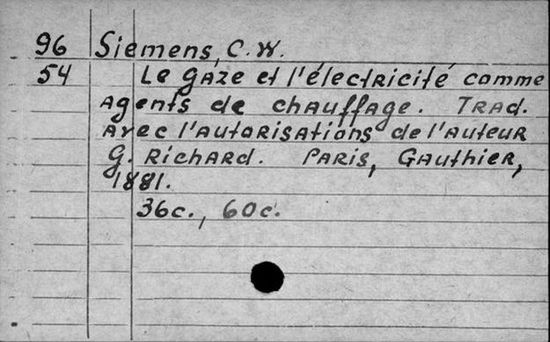 96 Siemens, C.W.
54 Le gaze et l'électricité comme
agents de chauffage. Trad.
avec l'autorisations de l'auteur
G. Richard. Paris, Gauthier,
1881.
36c., 60c.